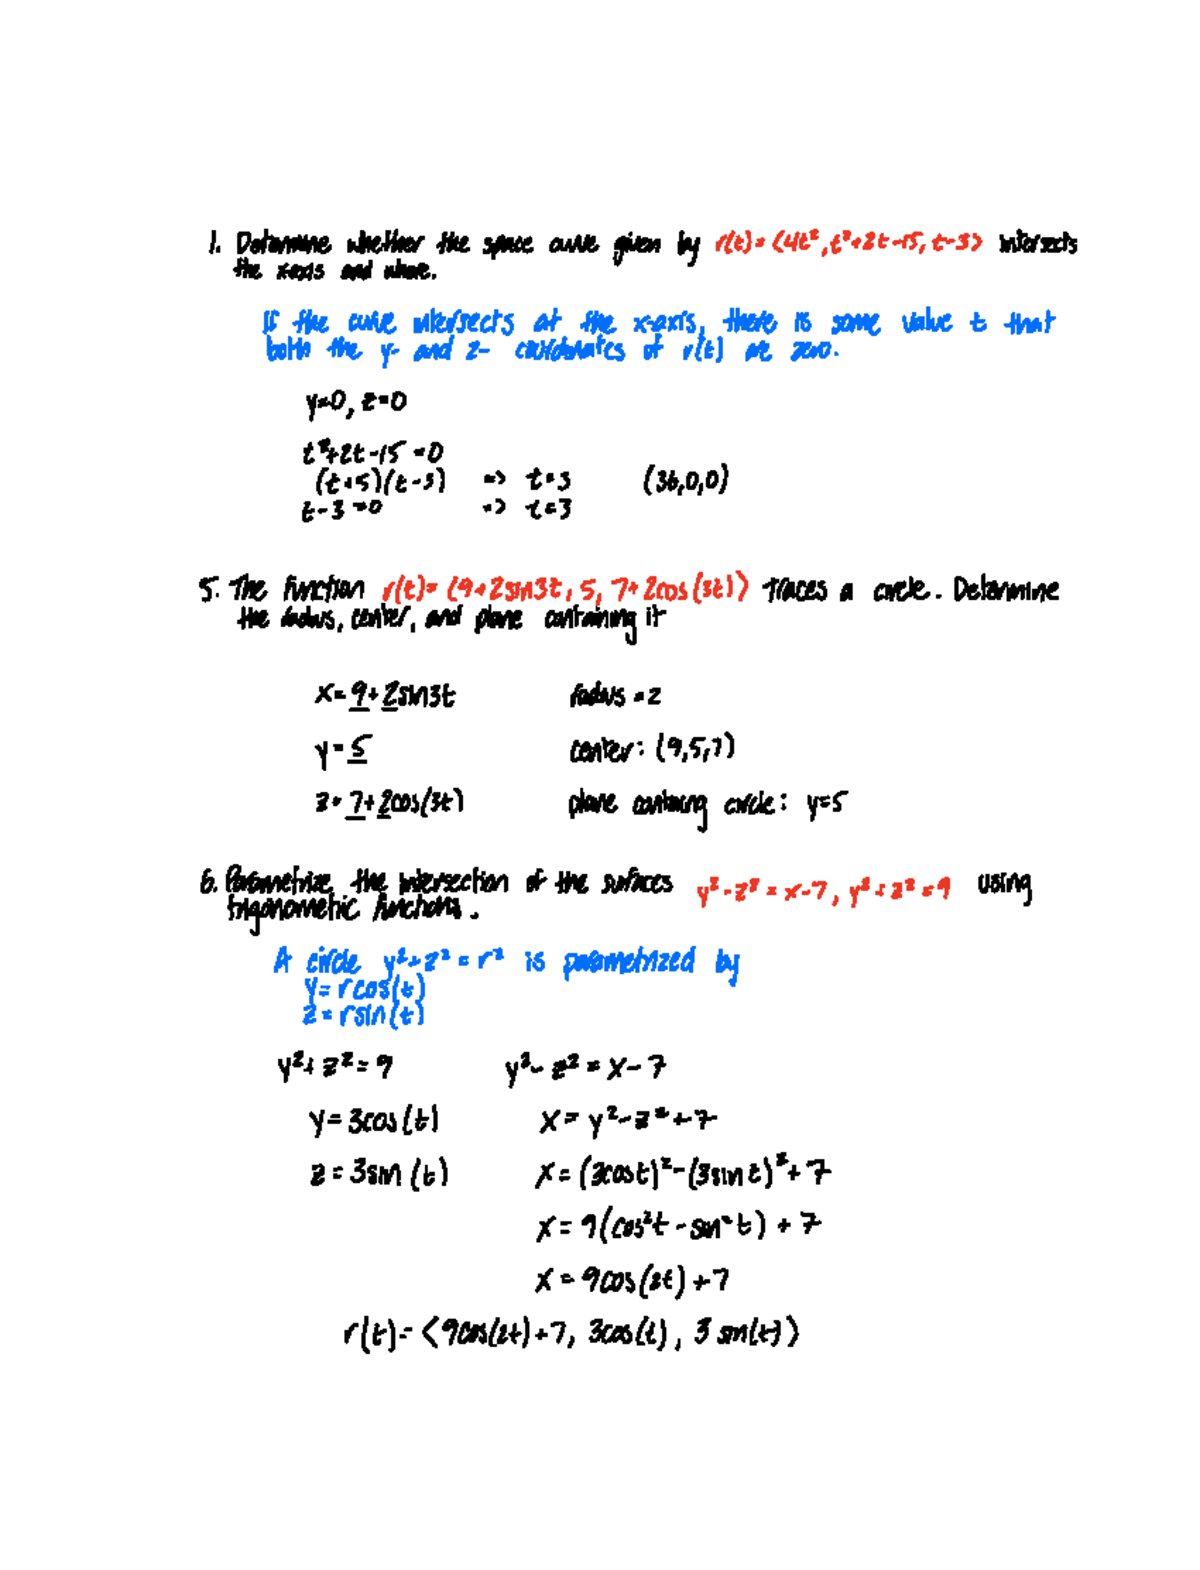 1. Determine whether the space curve given by r(t) = ⟨4t², t²+2t-15, t-3⟩ intersects
the x-axis and where.
If the curve intersects at the x-axis, there is some value t that
both the y- and z- coordinates of r(t) are zero.
y=0, z=0
t²+2t-15=0
(t+5)(t-3) => t=3 (36,0,0)
t-3=0 => t=3
5. The function r(t)= ⟨9+2sin3t, 5, 7+2cos(3t)⟩ traces a circle. Determine
the radius, center, and plane containing it
x=9+2sin3t radius = 2
y=5 center: (9,5,7)
z=7+2cos(3t) plane containing circle: y=5
6. Parametrize the intersection of the surfaces y²-z²=x-7, y²+z²=9 using
trigonometric functions.
A circle y²+z²=r² is parametrized by
y=rcos(t)
z=rsin(t)
y²+z²=9 y²-z²=x-7
y=3cos(t) x=y²-z²+7
z=3sin(t) x=(3cost)²-(3sint)²+7
x=9(cos²t-sin²t)+7
x=9cos(2t)+7
r(t)=⟨9cos(2t)+7, 3cos(t), 3sin(t)⟩